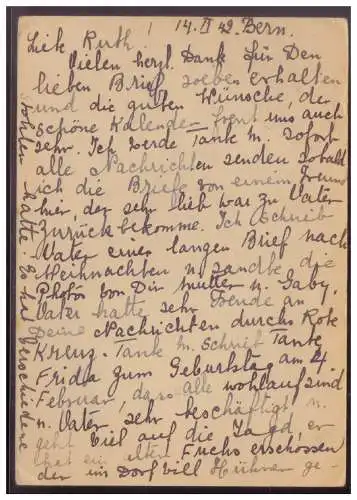 14. II 42. Bern.
Liebe Ruth!
Vielen herzl. Dank für Den
lieben Brief, soeben erhalten
und die guten Wünsche, der
schöne Kalender freut uns auch
sehr. Ich werde Tante M. sofort
alle Nachrichten senden sobald
ich die Briefe von einem Freund
hier, der sehr lieb war zu Vater
zurückbekomme. Ich schrieb
Vater einen langen Brief nach
Weihnachten u. sandte die
Photos von Dir Mutter u. Gaby.
Vater hatte sehr Freude an
Deine Nachrichten durchs Rote
Kreuz. Tante M. schrieb Tante
Frida zum Geburtstag am 4
Februar, dass alle wohlauf sind
u. Vater sehr beschäftigt u.
geht viel auf die Jagd, er
hat ein alten Fuchs erschossen
der im Dorf vill Hühner ge-
stohlen hatte. Es hat verschiedene